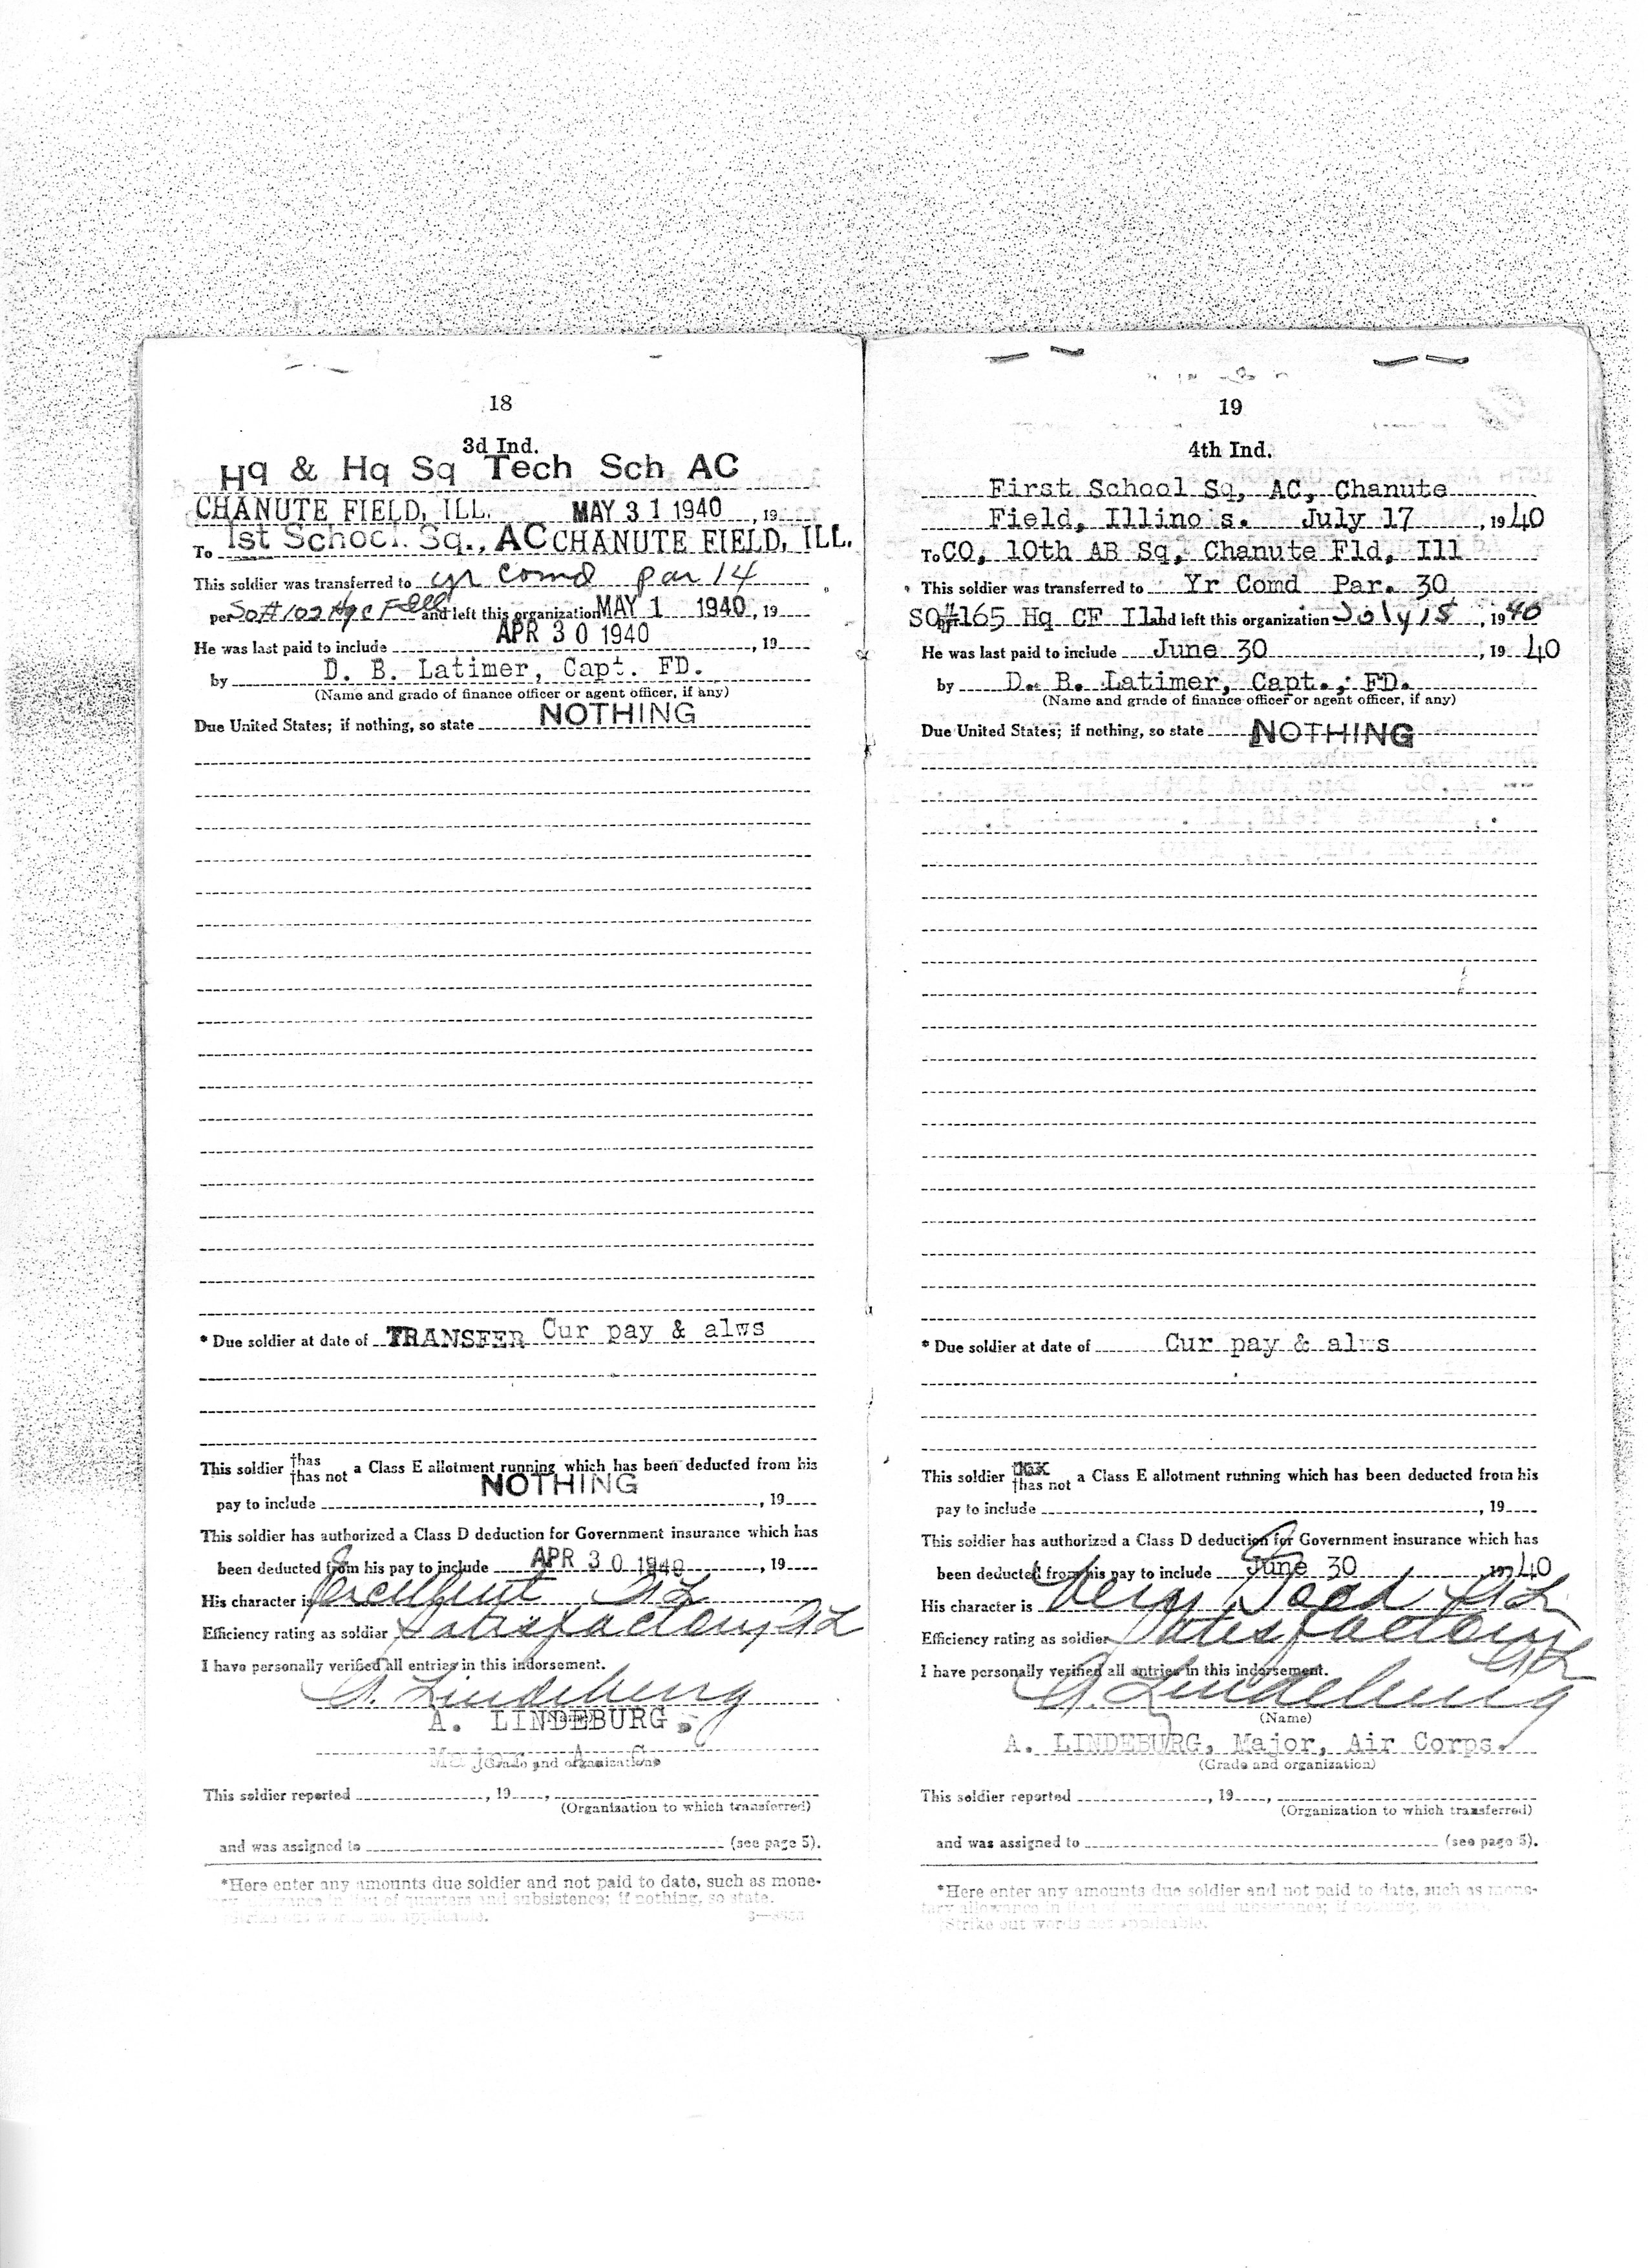 18
3d Ind.
Hq & Hq Sq Tech Sch AC
CHANUTE FIELD, ILL. MAY 31 1940, 19
To 1st School Sq., AC CHANUTE FIELD, ILL.
This soldier was transferred to yr comd par 14
per SO# 102 Hq C F Ill and left this organization MAY 1 1940, 19
He was last paid to include APR 30 1940, 19
by D. B. Latimer, Capt. FD.
(Name and grade of finance officer or agent officer, if any)
Due United States; if nothing, so state NOTHING
* Due soldier at date of TRANSFER Cur pay & alws
This soldier †has †has not a Class E allotment running which has been deducted from his
NOTHING
pay to include , 19
This soldier has authorized a Class D deduction for Government insurance which has
been deducted from his pay to include APR 30 1940, 19
His character is Excellent AL
Efficiency rating as soldier Satisfactory AL
I have personally verified all entries in this indorsement.
A. Lindeburg
A. LINDEBURG
Major A. C.
(Grade and organization)
This soldier reported , 19 ,
(Organization to which transferred)
and was assigned to (see page 5).
*Here enter any amounts due soldier and not paid to date, such as mone-
tary allowance in lieu of quarters and subsistence; if nothing, so state.
†Strike out words not applicable.
19
4th Ind.
First School Sq, AC, Chanute
Field, Illinois. July 17, 1940
To CO, 10th AB Sq, Chanute Fld, Ill
This soldier was transferred to Yr Comd Par. 30
SO#165 Hq CF Ill and left this organization July 18, 1940
He was last paid to include June 30, 1940
by D. B. Latimer, Capt., FD.
(Name and grade of finance officer or agent officer, if any)
Due United States; if nothing, so state NOTHING
* Due soldier at date of Cur pay & alws
This soldier †has not a Class E allotment running which has been deducted from his
pay to include , 19
This soldier has authorized a Class D deduction for Government insurance which has
been deducted from his pay to include June 30 1940
His character is Very Good AL
Efficiency rating as soldier Satisfactory
AL
I have personally verified all entries in this indorsement.
A. Lindeburg
(Name)
A. LINDEBURG, Major, Air Corps.
(Grade and organization)
This soldier reported , 19 ,
(Organization to which transferred)
and was assigned to (see page 5).
*Here enter any amounts due soldier and not paid to date, such as mone-
tary allowance in lieu of quarters and subsistence; if nothing, so state.
†Strike out words not applicable.